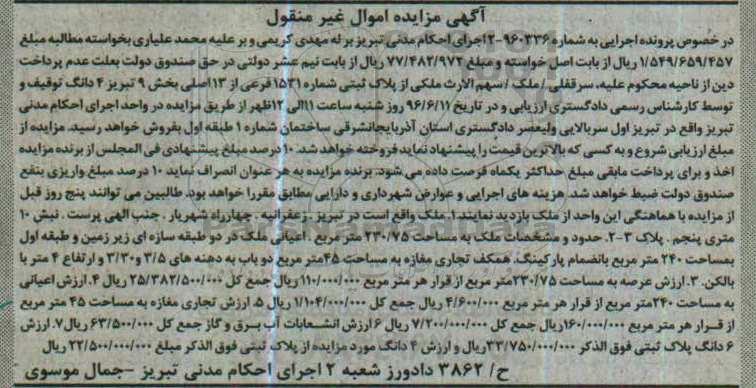 آگهی مزایده اموال غیر منقول
در خصوص پرونده اجرایی به شماره ۹۶۰۳۳۶-۲ اجرای احکام مدنی تبریز بر له مهدی کریمی و بر علیه محمد علیاری بخواسته مطالبه مبلغ
۱/۵۴۹/۶۵۹/۴۵۷ ریال از بابت اصل خواسته و مبلغ ۷۷/۴۸۲/۹۷۲ ریال از بابت نیم عشر دولتی در حق صندوق دولت بعلت عدم پرداخت
دین از ناحیه محکوم علیه، سرقفلی / ملک / سهم الارث ملکی از پلاک ثبتی شماره ۱۵۳۱ فرعی از ۱۳ اصلی بخش ۹ تبریز ۴ دانگ توقیف و
توسط کارشناس رسمی دادگستری ارزیابی و در تاریخ ۹۶/۶/۱۱ روز شنبه ساعت ۱۱الی ۱۲ظهر از طریق مزایده در واحد اجرای احکام مدنی
تبریز واقع در تبریز اول سربالایی ولیعصر دادگستری استان آذربایجانشرقی ساختمان شماره ۱ طبقه اول بفروش خواهد رسید. مزایده از
مبلغ ارزیابی شروع و به کسی که بالاترین قیمت را پیشنهاد نماید فروخته خواهد شد. ۱۰ درصد مبلغ پیشنهادی فی المجلس از برنده مزایده
اخذ و برای پرداخت مابقی مبلغ حداکثر یکماه فرصت داده می شود. برنده مزایده به هر عنوان انصراف نماید ۱۰ درصد مبلغ واریزی بنفع
صندوق دولت ضبط خواهد شد. هزینه های اجرایی و عوارض شهرداری و دارایی مطابق مقررا خواهد بود. طالبین می توانند پنج روز قبل
از مزایده با هماهنگی این واحد از ملک بازدید نمایند ۱. ملک واقع است در تبریز . زعفرانیه . چهارراه شهریار . جنب الهی پرست . نبش ۱۰
متری پنجم . پلاک ۳-۲. حدود و مشخصات ملک به مساحت ۲۳۰/۷۵ متر مربع . اعیانی ملک در دو طبقه سازه ای زیر زمین و طبقه اول
بمساحت ۲۴۰ متر مربع بانضمام پارکینگ. همکف تجاری مغازه به مساحت ۴۵متر مربع دو باب به دهنه های ۳/۵ و ۳/۳۰ و ارتفاع ۴ متر با
بالکن. ۳. ارزش عرصه به مساحت ۲۳۰/۷۵متر مربع از قرار هر متر مربع ۱۱۰/۰۰۰/۰۰۰ ریال جمع کل ۲۵/۳۸۲/۵۰۰/۰۰۰ ریال ۴. ارزش اعیانی
به مساحت ۲۴۰متر مربع از قرار هر متر مربع ۴/۶۰۰/۰۰۰ ریال جمع کل ۱/۱۰۴/۰۰۰/۰۰۰ ریال ۵. ارزش تجاری مغازه به مساحت ۴۵ متر مربع
از قرار هر متر مربع ۱۶۰/۰۰۰/۰۰۰ریال جمع کل ۷/۲۰۰/۰۰۰/۰۰۰ ریال ۶. ارزش انشعابات آب برق و گاز جمع کل ۶۳/۵۰۰/۰۰۰ ریال ۷. ارزش
۶ دانگ پلاک ثبتی فوق الذکر ۳۳/۷۵۰/۰۰۰/۰۰۰ریال و ارزش ۴ دانگ مورد مزایده از پلاک ثبتی فوق الذکر مبلغ ۲۲/۵۰۰/۰۰۰/۰۰۰ ریال
ح/ ۳۸۶۲ دادورز شعبه ۲ اجرای احکام مدنی تبریز -جمال موسوی